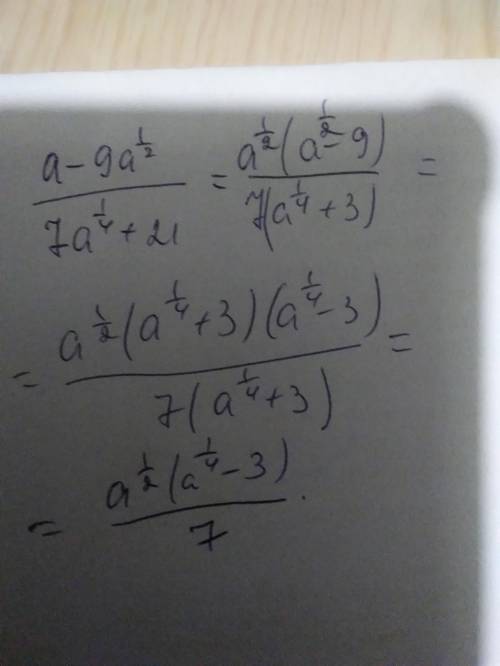 \frac{a - 9a^{\frac{1}{2}}}{7a^{\frac{1}{4}} + 21} = \frac{a^{\frac{1}{2}}(a^{\frac{1}{2}} - 9)}{7(a^{\frac{1}{4}} + 3)} =
= \frac{a^{\frac{1}{2}}(a^{\frac{1}{4}} + 3)(a^{\frac{1}{4}} - 3)}{7(a^{\frac{1}{4}} + 3)} =
= \frac{a^{\frac{1}{2}}(a^{\frac{1}{4}} - 3)}{7}.